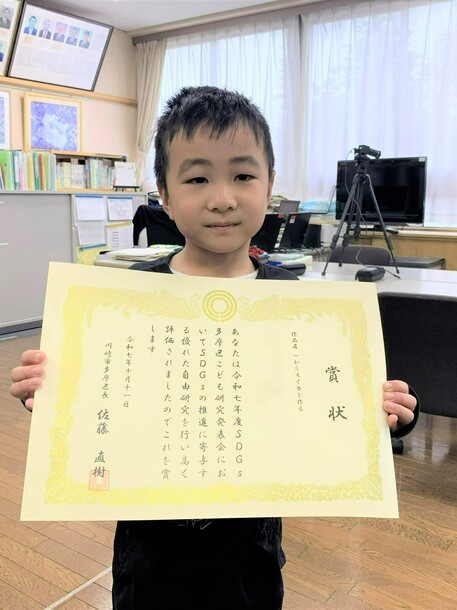 賞状
作品名 一からスイカを作る
あなたは令和七年度SDGs
多摩区こども研究発表会にお
いてSDGsの推進に寄与す
る優れた自由研究を行い高く
評価されましたのでこれを賞
します
令和七年十月十一日
川崎市多摩区長 佐藤 直樹